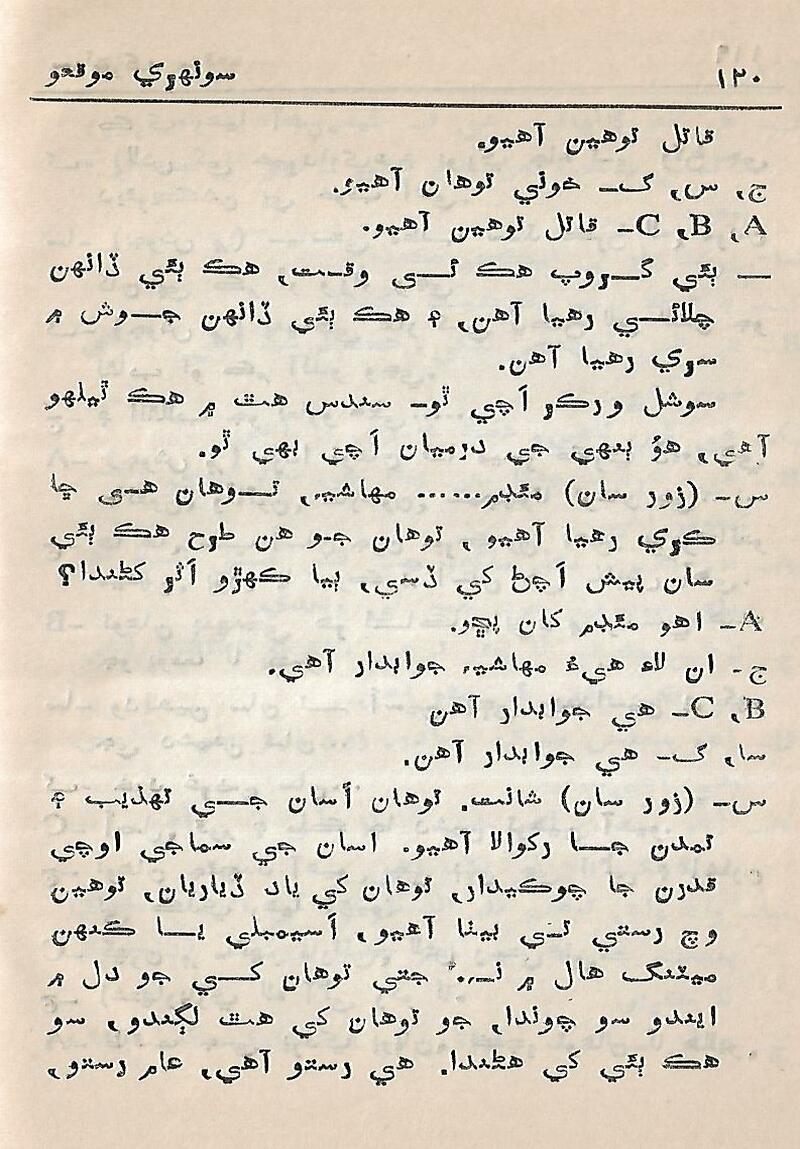 ۱۲۰ سونهري موقعو
قاتل توهين آهيو.
ج، س، گ- خوني توهان آهيو.
A، B، C- قاتل توهين آهيو.
— ٻئي گروپ هڪ ئي وقت، هڪ ٻئي ڏانهن
چلائي رهيا آهن، ۽ هڪ ٻئي ڏانهن جوش ۾
سري رهيا آهن.
سوشل ورڪر اَچي ٿو- سندس هٿ ۾ هڪ ٿيلهو
آهي، هوُ ٻنهي جي درميان اَچي بهي ٿو.
س- (زور سان) مئڊم...... مهاشيه، توهان هي ڇا
ڪري رهيا آهيو، توهان جو هن طرح هڪ ٻئي
سان پيش اَچڻ کي ڏسي، ٻيا ڪهڙو اَثر کڻندا؟
A- اهو مئڊم کان پڇو.
ج- ان لاءِ هيءُ مهاشيه جوابدار آهي.
B، C- هي جوابدار آهن
سا، گ- هي جوابدار آهن.
س- (زور سان) شانت. توهان اَسان جي تهذيب ۽
تمدن جا رکوالا آهيو. اسان جي سماجي اوچي
قدرن جا چوڪيدار، توهان کي ياد ڏياريان، توهين
وچ رستي تي بيٺا آهيو، اَسيمبلي يا ڪنهن
ميٽنگ هال ۾ نہ. جتي توهان کي جو دل ۾
ايندو سو چوندا، جو توهان کي هٿ لڳندو، سو
هڪ ٻئي کي هڻندا. هي رستو آهي، عام رستو،